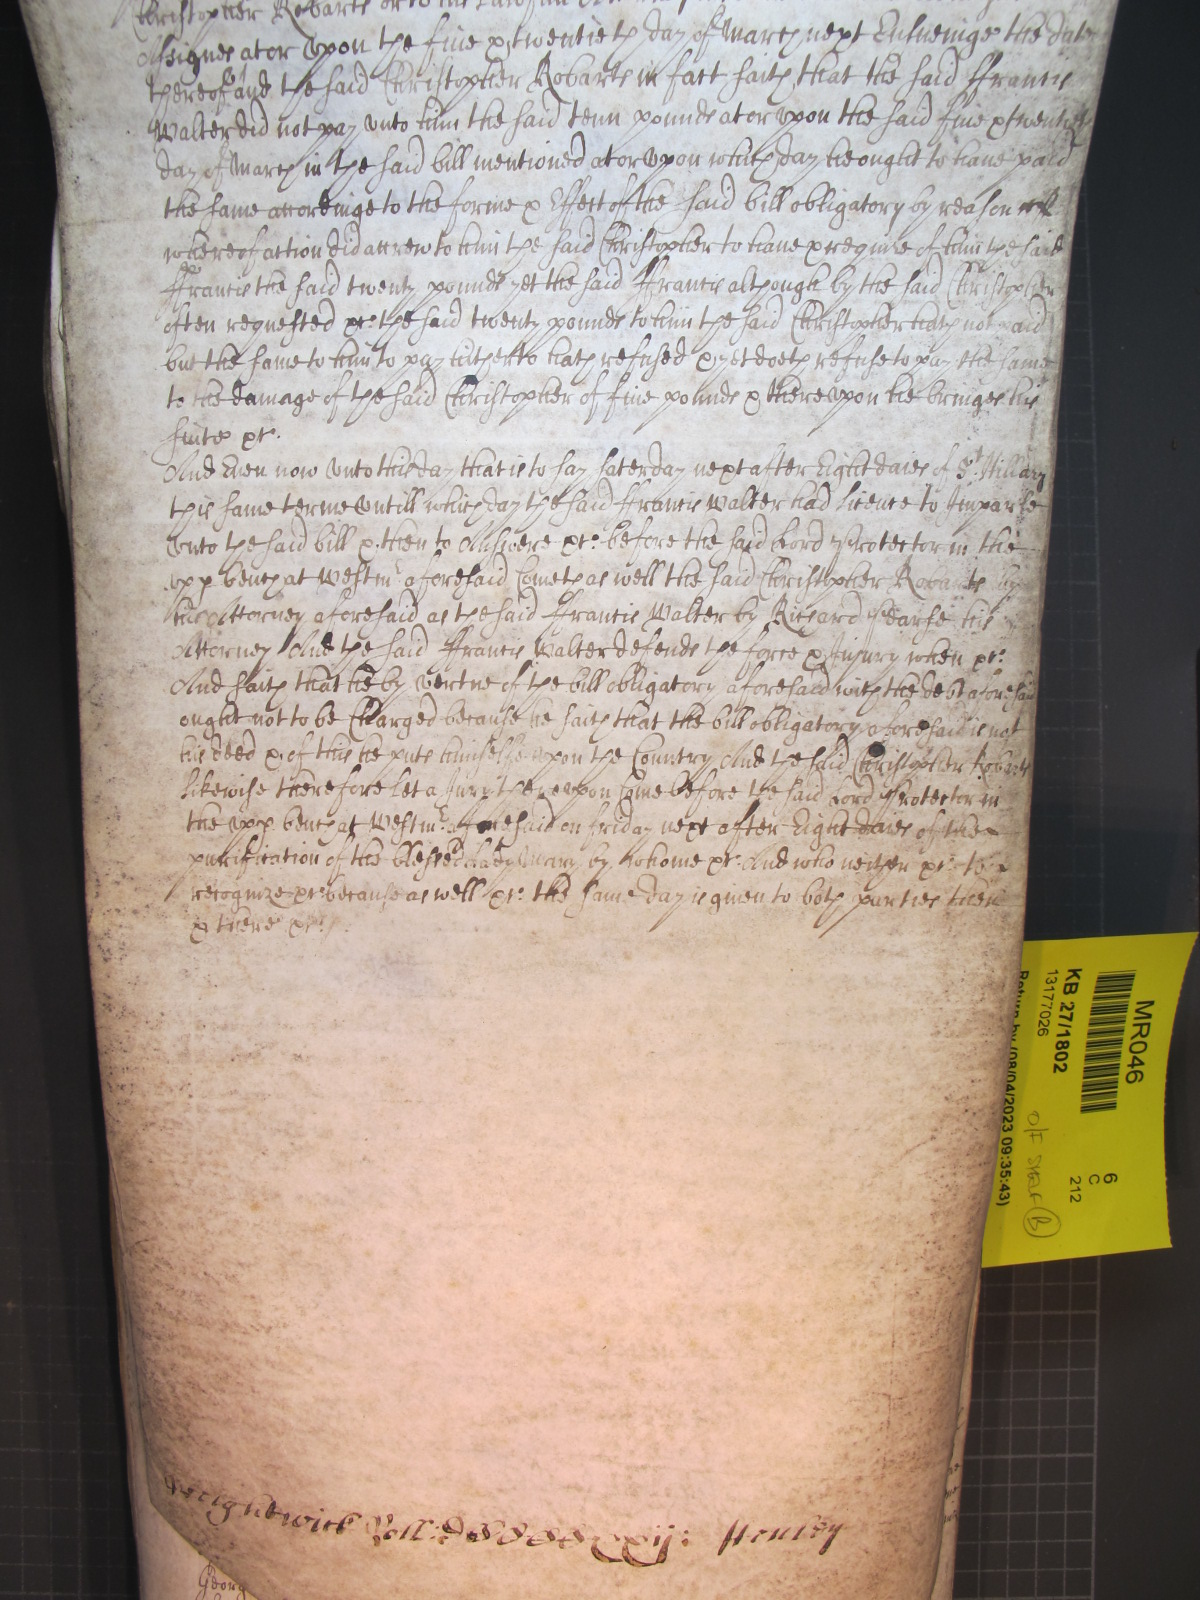 Christopher Robarts or to his
Assignes at or vpon the five & twentieth day of March next Ensueinge the date
thereof And the said Christopher Robarts in fact saith that the said ffrancis
Walter did not pay vnto him the said tenn pounds at or vpon the said five & twentieth
day of March in the said bill mentioned at or vpon which day he ought to haue paid
the same accordinge to the forme & Effect of the said bill obligatory by reason
whereof action did accrew to him the said Christopher to haue & require of him the said
ffrancis the said twenty pounds yet the said ffrancis although by the said Christopher
often requested &c: the said twenty pounds to him the said Christopher hath not paid
but the same to him to pay hitherto hath refused & yet doeth refuse to pay the same
to the damage of the said Christopher of five pounds & therevpon he bringes his
suite &c.
And Even now vnto this day that is to say saterday next after Eight daies of St. Hillary
this same terme vntill which day the said ffrancis Walter had licence to Imparle
vnto the said bill & then to Answere &c: before the said Lord Protector in the
vpp bench at Westmr. aforesaid Cometh as well the said Christopher Robarts by
his Attorney aforesaid as the said ffrancis Walter by Richard Pearse his
Attorney And the said ffrancis Walter defends the force & Injury when &c:
And saith that he by vertue of the bill obligatory aforesaid with the debt aforesaid
ought not to be Charged because he saith that the bill obligatory aforesaid is not
his deed & of this he puts himselfe vpon the Country And the said Christopher Robarts
likewise therefore let a Jury therevpon Come before the said Lord Protector in
the vpp bench at Westmr. aforesaid on friday next after Eight daies of the
purification of the blessed Lady Mary by whome &c: And who neither &c: to
recognize &c: because as well &c: the same day is given to both parties then
& there &c:/.
Roll: Henley
Georg
MR046
KB 27/1802
13177026
6
C
212
O/F SHELF (B)
Return by (08/04/2023 09:35:43)